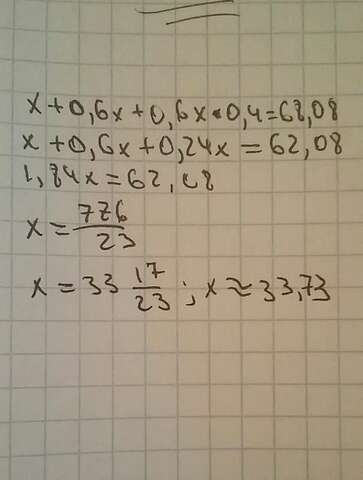 x+0,6x+0,6x•0,4=62,08
x+0,6x+0,24x=62,08
1,84x=62,08
x=776/23
x=33 17/23; x≈33,73